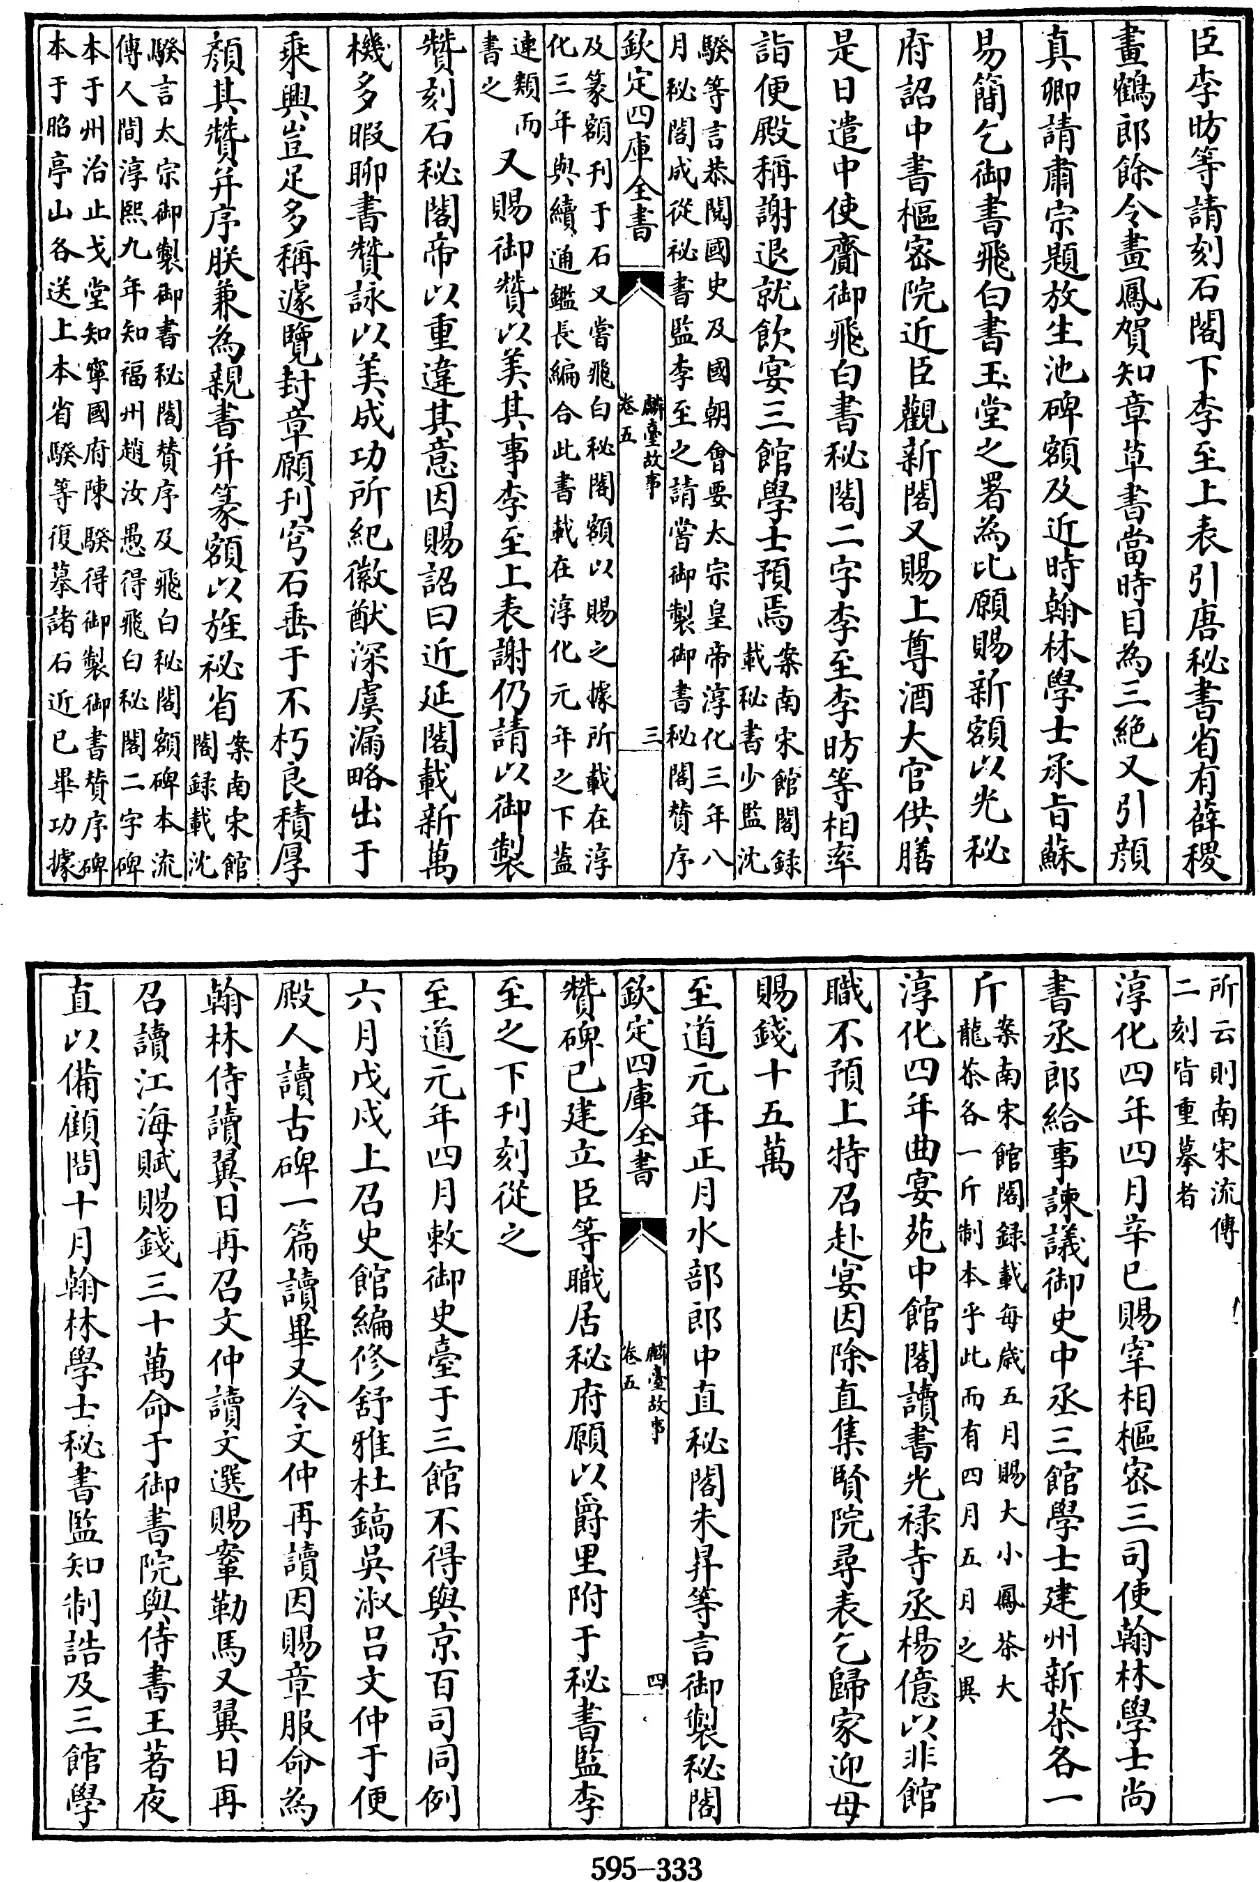 臣李昉等請刻石閣下李至上表引唐秘書省有薛稷
畫鶴郎餘令畫鳳賀知章草書當時目為三絶又引顔
真卿請肅宗題放生池碑額及近時翰林學士承旨蘇
易簡乞御書飛白書玉堂之署為比願賜新額以光秘
府詔中書樞密院近臣觀新閣又賜上尊酒大官供膳
是日遣中使齎御飛白書秘閣二字李至李昉等相率
詣便殿稱謝退就飲宴三館學士預焉案南宋館閣録
載秘書少監沈
騤等言恭閱國史及國朝會要太宗皇帝淳化三年八
月秘閣成從秘書監李至之請嘗御製御書秘閣贊序
欽定四庫全書
麟臺故事
卷五
三
及篆額刊于石又嘗飛白秘閣額以賜之據所載在淳
化三年與續通鑑長編合此書載在淳化元年之下蓋
連類而
書之
又賜御贊以美其事李至上表謝仍請以御製
贊刻石秘閣帝以重違其意因賜詔曰近延閣載新萬
機多暇聊書贊詠以美成功所紀徽猷深虞漏略出于
乘興豈足多稱遽覽封章願刊穹石垂于不朽良積厚
顔其贊并序朕兼為親書并篆額以旌秘省案南宋館
閣録載沈
騤言太宗御製御書秘閣贊序及飛白秘閣額碑本流
傳人間淳熙九年知福州趙汝愚得飛白秘閣二字碑
本于州治止戈堂知寧國府陳騤得御製御書贊序碑
本于昭亭山各送上本省騤等復摹諸石近已畢功據
所云則南宋流傳
二刻皆重摹者
淳化四年四月辛巳賜宰相樞密三司使翰林學士尚
書丞郎給事諫議御史中丞三館學士建州新茶各一
斤案南宋館閣録載每歲五月賜大小鳳茶大
龍茶各一斤制本乎此而有四月五月之異
淳化四年曲宴苑中館閣讀書光禄寺丞楊億以非館
職不預上特召赴宴因除直集賢院尋表乞歸家迎母
賜錢十五萬
至道元年正月水部郎中直秘閣朱昇等言御製秘閣
欽定四庫全書
麟臺故事
卷五
四
贊碑已建立臣等職居秘府願以爵里附于秘書監李
至之下刊刻從之
至道元年四月敕御史臺于三館不得與京百司同例
六月戊戌上召史館編修舒雅杜鎬吳淑呂文仲于便
殿人讀古碑一篇讀畢又令文仲再讀因賜章服命為
翰林侍讀翼日再召文仲讀文選賜鞌勒馬又翼日再
召讀江海賦賜錢三十萬命于御書院與侍書王著夜
直以備顧問十月翰林學士秘書監知制誥及三館學
595-333